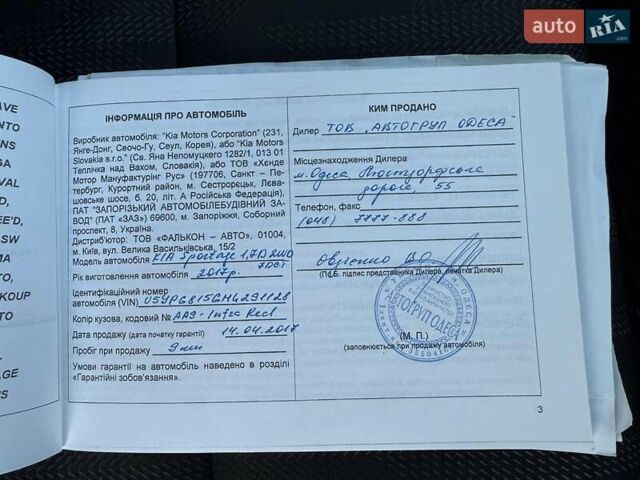 auto RIA.com
AVE
NTO
NS
GA
VAL
D
EE'D,
SW
MA
KOUP
TO
AGE
ES
ІНФОРМАЦІЯ ПРО АВТОМОБІЛЬ
Виробник автомобіля: "Kia Motors Corporation" (231,
Янге-Донг, Сеочо-Гу, Сеул, Корея), або "Kia Motors
Slovakia s.r.o." (Св. Яна Непомуцкего 1282/1, 013 01
Теплічка над Вахом, Словакія), або ТОВ «Хенде
Мотор Мануфактурінг Рус» (197706, Санкт – Пе-
тербург, Курортний район, м. Сестрорецьк, Лєва-
шовське шосе, б. 20, літ. А Російська Федерація),
ПАТ "ЗАПОРІЗЬКИЙ АВТОМОБІЛЕБУДІВНИЙ ЗА-
ВОД" (ПАТ «ЗАЗ») 69600, м. Запоріжжя, Соборний
проспект, 8, Україна.
Дистриб'ютор: ТОВ «ФАЛЬКОН – АВТО», 01004,
м. Київ, вул. Велика Васильківська, 15/2
Модель автомобіля KIA Sportage 1,7D 2WD
7DCT
Рік виготовлення автомобіля 2017р.
Ідентифікаційний номер
автомобіля (VIN) U5YPG815GHL291128
Колір кузова, кодовий № AA9-Infra Red
Дата продажу (дата початку гарантії) 14.04.2017
Пробіг при продажу 9 км
Умови гарантії на автомобіль наведено в розділі
«Гарантійні зобов'язання».
КИМ ПРОДАНО
Дилер ТОВ "АВТОГРУП ОДЕСА"
Місцезнаходження Дилера
м. Одеса
дорога, 55
Телефон, факс
(048) 7777-888
(П.І.Б. підпис представника Дилера, печатка Дилера)
АВТОГРУП ОДЕСА
(М. П.)
(заповнюється при продажу автомобіля)
3